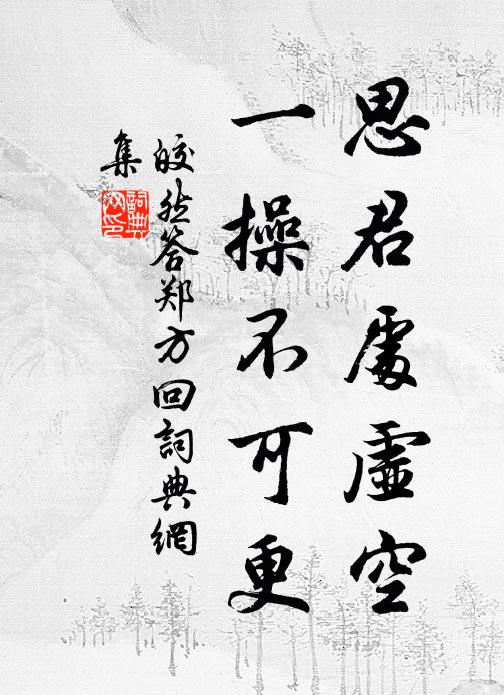 思君處虛空
一操不可更
皎然答郑方回詞典網
集
詞典網印